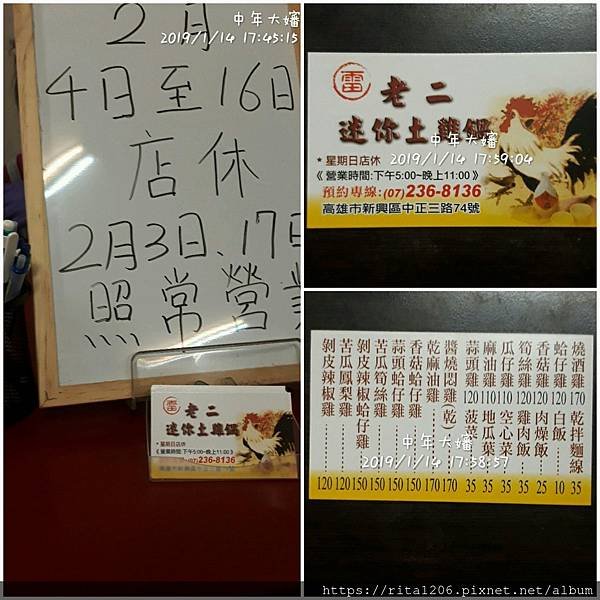 中年大嬸
2019/1/14 17:45:15
2月
4日至16日
店休
2月3日、17日
照常營業
雷
老二
迷你土雞鍋
*星期日店休
《營業時間:下午5:00~晚上11:00》
預約專線:(07)236-8136
高雄市新興區中正三路74號
雷
老二
迷你土雞鍋
中年大嬸
2019/1/14 17:59:04
*星期日店休
《營業時間:下午5:00~晚上11:00》
預約專線:(07)236-8136
高雄市新興區中正三路74號
燒酒雞 170 乾拌麵線 35
蛤仔雞 120 白飯 10
香菇雞 120 肉燥飯 25
筍絲雞 120 雞肉飯 35
瓜仔雞 110 空心菜 35
麻油雞 110 地瓜葉 35
蒜頭雞 120 菠菜 35
醬燒悶雞(乾) 170
乾麻油雞 170
香菇蛤仔雞 150
蒜頭蛤仔雞 150
苦瓜筍絲雞 150
剝皮辣椒蛤仔雞 150
苦瓜鳳梨雞 120
剝皮辣椒雞 120
中年大嬸
2019/1/14 17:58:57
https://rita1206.pixnet.net/album